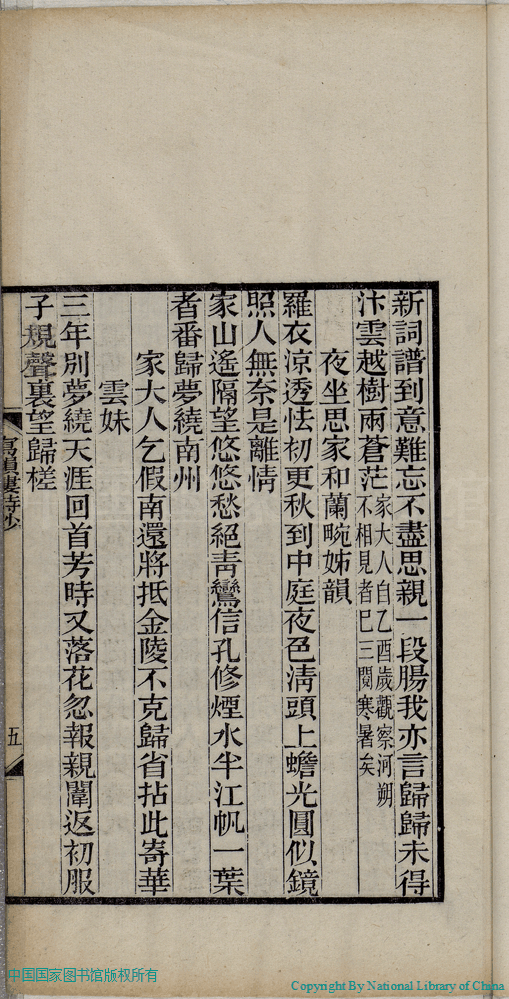 新詞譜到意難忘不盡思親一段腸我亦言歸歸未得
汴雲越樹雨蒼茫家大人自乙酉歲觀察河朔不相見者已三閱寒暑矣
夜坐思家和蘭畹姊韻
羅衣涼透怯初更秋到中庭夜色淸頭上蟾光圓似鏡
照人無奈是離情
家山遙隔望悠悠愁絕靑鸞信孔修煙水半江帆一葉
者番歸夢繞南州
家大人乞假南還將抵金陵不克歸省拈此寄華
雲妹
三年別夢繞天涯回首芳時又落花忽報親闈返初服
子規聲裏望歸槎
寫韻樓詩鈔
五
中国国家图书馆版权所有
Copyright By National Library of China